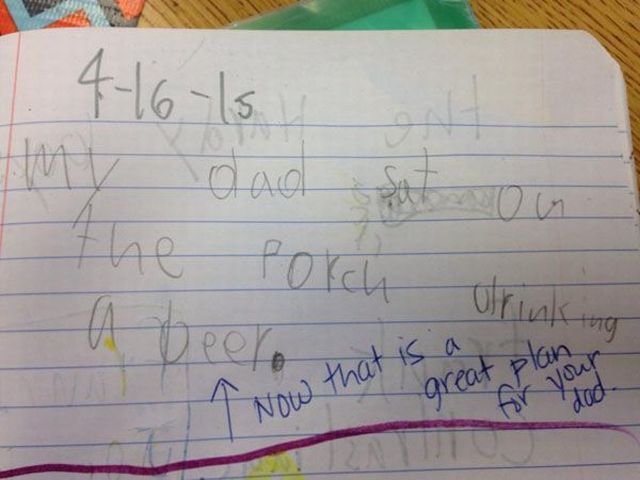 4-16-15
My dad sat on
the Porch drinking
a beer.
↑ Now that is a
great plan
for your
dad.